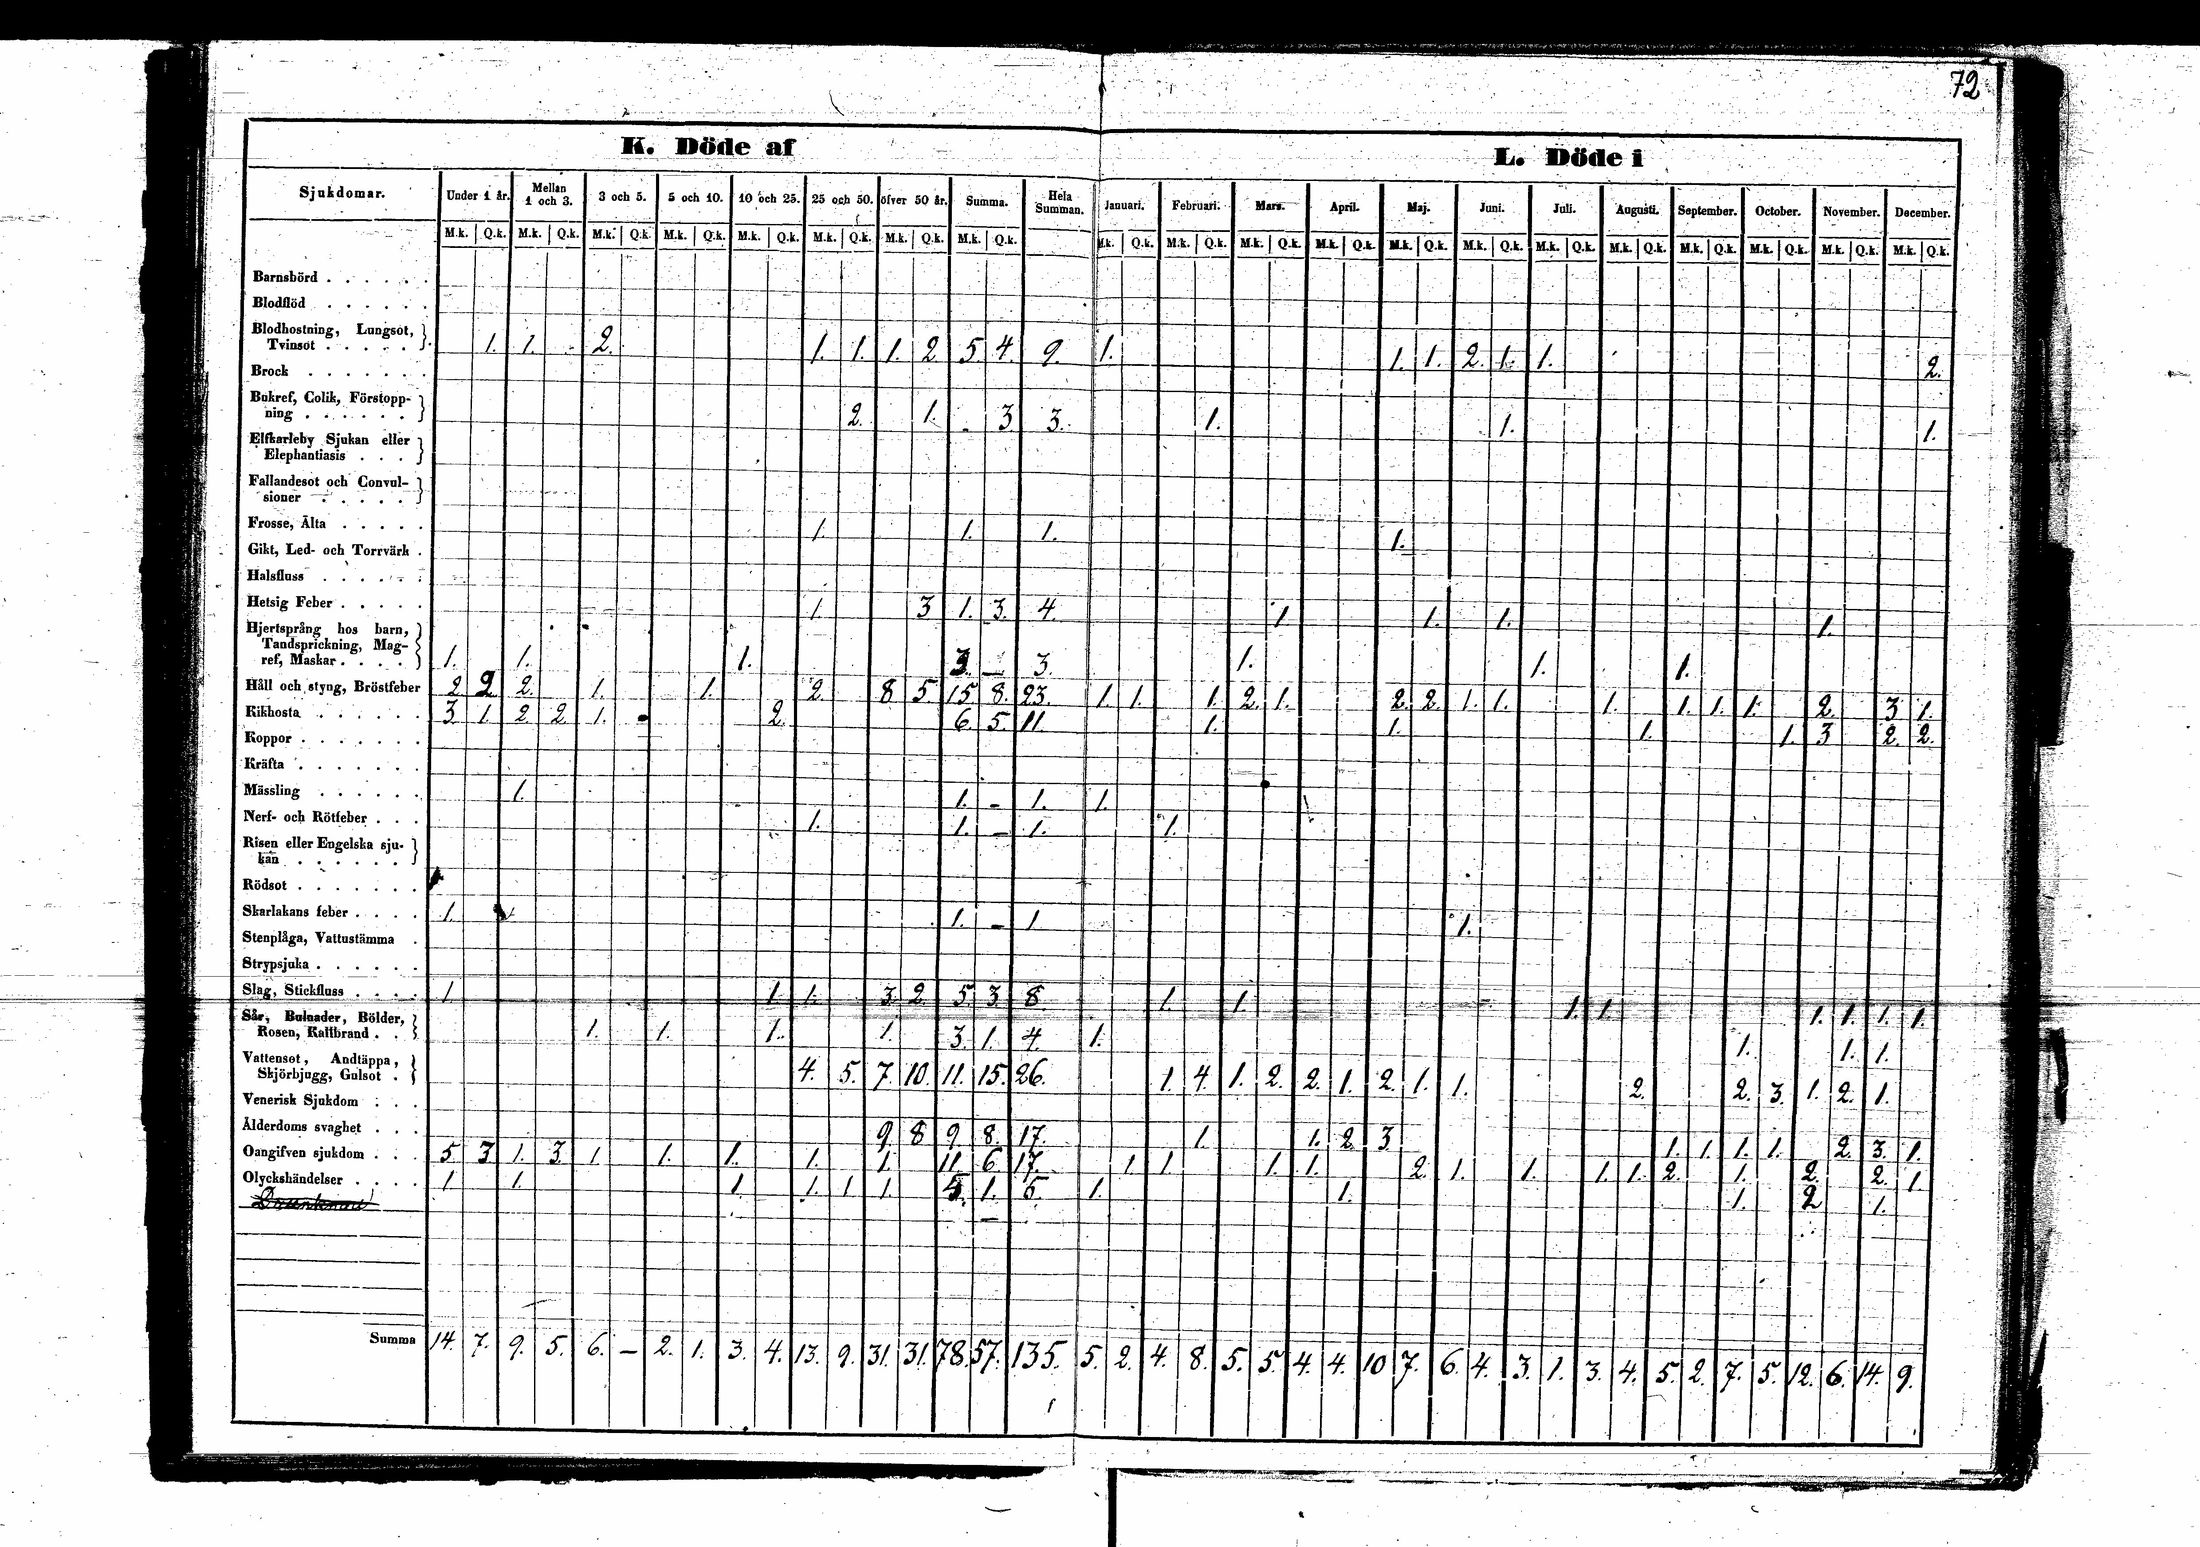 72
K. Döde af
L. Döde i
Sjukdomar. Under 1 år. Mellan 1 och 3. 3 och 5. 5 och 10. 10 och 25. 25 och 50. öfver 50 år. Summa. Hela Summan. Januari. Februari. Mars. April. Maj. Juni. Juli. Augusti. September. October. November. December.
M.k. Q.k. M.k. Q.k. M.k. Q.k. M.k. Q.k. M.k. Q.k. M.k. Q.k. M.k. Q.k. M.k. Q.k. M.k. Q.k. M.k. Q.k. M.k. Q.k. M.k. Q.k. M.k. Q.k. M.k. Q.k. M.k. Q.k. M.k. Q.k. M.k. Q.k. M.k. Q.k. M.k. Q.k. M.k. Q.k.
Barnsbörd
Blodflöd
Blodhostning, Lungsot,
Tvinsot 1. 1. 2. 1. 1. 1. 2 5. 4. 9. 1. 1. 1. 2. 1. 1. 2.
Brock
Bukref, Colik, Förstopp-
ning 2. 1. 3 3. 1. 1. 1.
Elfkarleby Sjukan eller
Elephantiasis
Fallandesot och Convul-
sioner
Frosse, Älta 1. 1. 1. 1.
Gikt, Led- och Torrvärk
Halsfluss
Hetsig Feber 1. 3 1. 3. 4. 1 1. 1. 1.
Hjertsprång hos barn,
Tandsprickning, Mag-
ref, Maskar 1. 1. 1. 3. — 3. 1. 1. 1.
Håll och styng, Bröstfeber 2 2 2. 1. 1. 2. 8 5. 15 8. 23. 1. 1. 1. 2. 1. 2. 2. 1. 1. 1. 1. 1. 1. 2. 3 1.
Rikhosta 3. 1. 2 2. 1. 2. 6. 5. 11. 1. 1. 1. 1. 3 2. 2.
Koppor
Kräfta
Mässling 1. 1. - 1. 1.
Nerf- och Rötfeber 1. 1. - 1. 1.
Risen eller Engelska sju-
kan
Rödsot
Skarlakans feber 1. 1. - 1 1.
Stenplåga, Vattustämma
Strypsjuka
Slag, Stickfluss 1. 1. 1. 3. 2. 5. 3. 8. 1. 1. 1. 1. 1. 1. 1. 1.
Sår, Bulnader, Bölder,
Rosen, Kallbrand 1. 1. 1. 1. 3. 1. 4. 1. 1. 1. 1.
Vattensot, Andtäppa,
Skjörbjugg, Gulsot 4. 5. 7. 10. 11. 15. 26. 1. 4. 1. 2. 2. 1. 2. 1. 1. 2. 2. 3. 1. 2. 1.
Venerisk Sjukdom
Ålderdoms svaghet 9. 8 9. 8. 17. 1. 1. 2. 3 1. 1. 1. 1. 2. 3. 1.
Oangifven sjukdom 5. 3 1. 3. 1 1. 1. 1. 1. 11. 6. 17. 1. 1. 1. 1. 2. 1. 1. 1. 1. 2. 1. 2. 2. 1.
Olyckshändelser 1. 1. 1. 1. 1 1. 5. 1. 6. 1. 1. 1. 2 1.
Summa 14. 7. 9. 5. 6. — 2. 1. 3. 4. 13. 9. 31. 31. 78. 57. 135. 5. 2. 4. 8. 5. 5. 4. 4. 10 7. 6. 4. 3. 1. 3. 4. 5. 2. 7. 5. 12. 6. 14. 9.